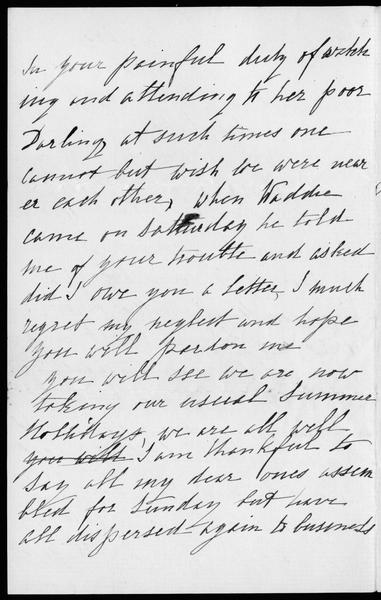 In your painful duty of watch
ing and attending to her poor
Darling, at such times one
cannot but wish we were near
er each other, when Waddie
came on Saturday he told
me of your trouble and asked
did I owe you a letter, I much
regret my neglect and hope
you will pardon me
you will see we are now
taking our usual Summer
Hollidays, we are all well
you will I am thankful to
say all my dear ones assem
bled for Sunday but have
all dispersed again to business